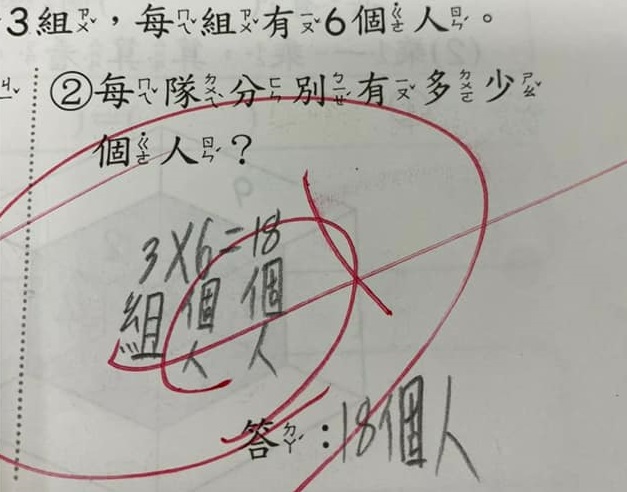 3組ㄗㄨˇ，每ㄇㄟˇ組ㄗㄨˇ有ㄧㄡˇ6個ㄍㄜ˙人ㄖㄣˊ。
②每ㄇㄟˇ隊ㄉㄨㄟˋ分ㄈㄣ別ㄅㄧㄝˊ有ㄧㄡˇ多ㄉㄨㄛ少ㄕㄠˇ
個ㄍㄜ˙人ㄖㄣˊ？
3×6=18
組 個 個
人 人
答ㄉㄚˊ：18個人